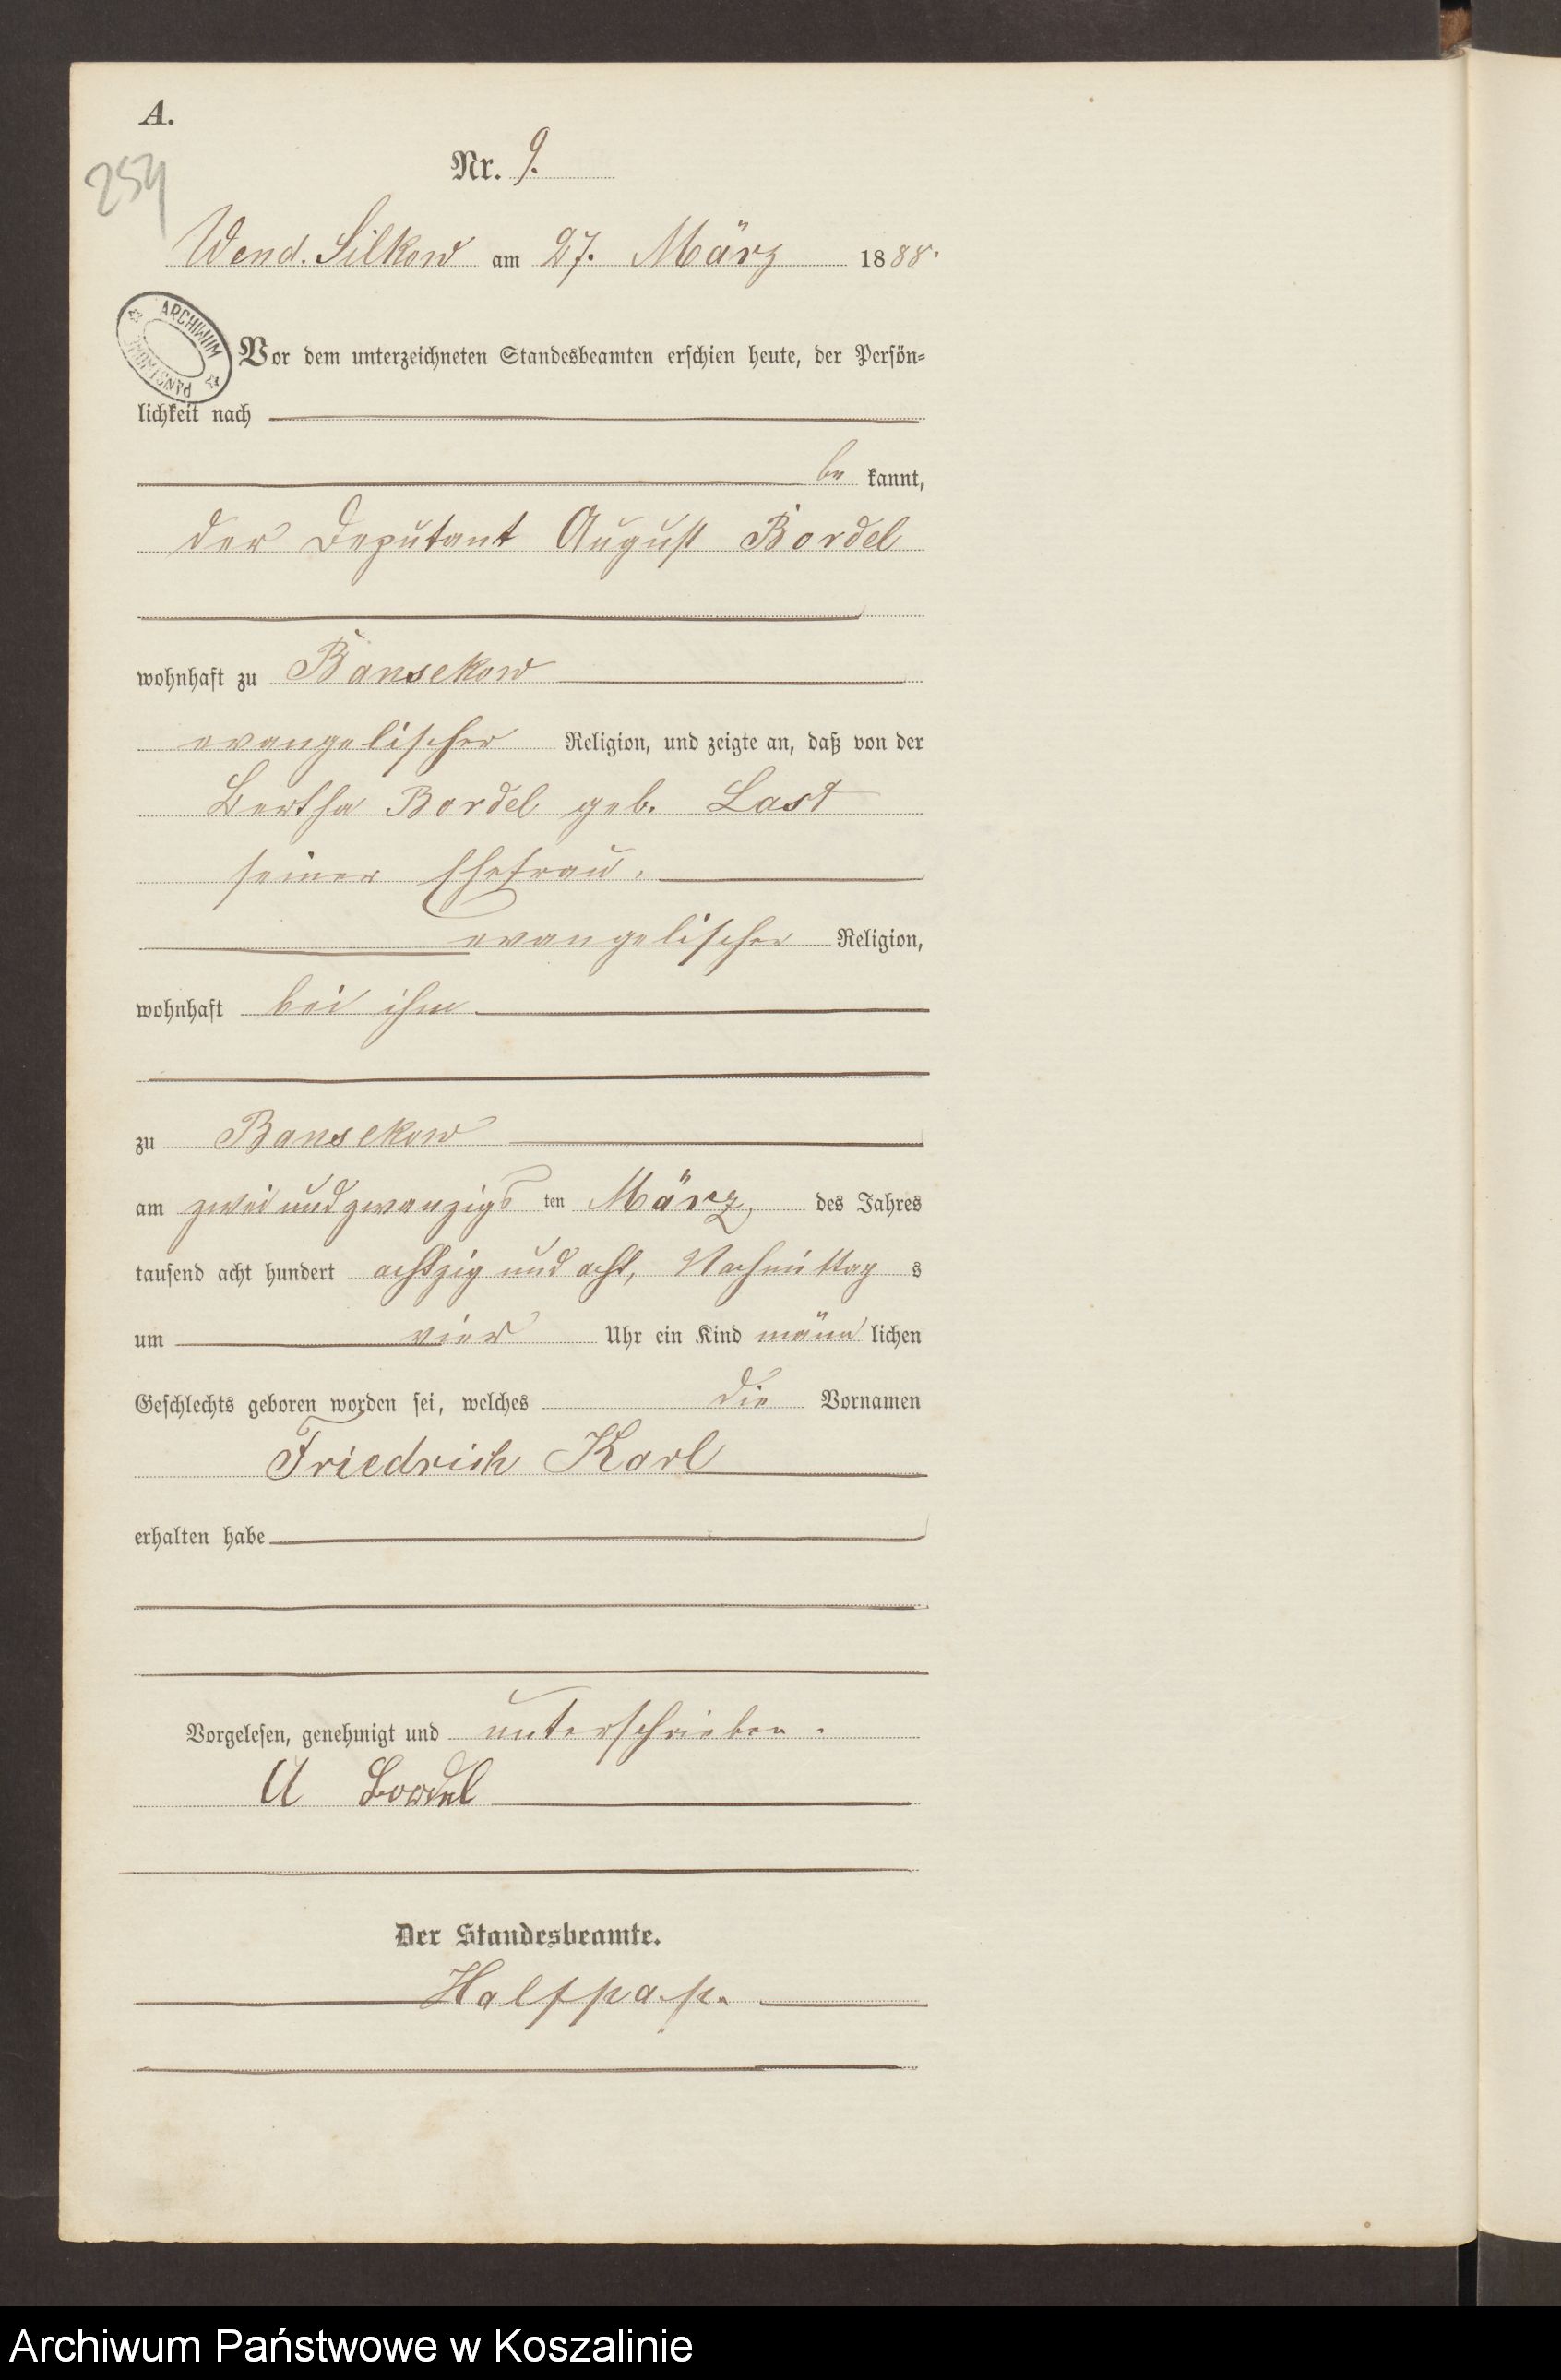 A.
254
Nr. 9.
Wend. Silkow am 27. März 1888.
ARCHIWUM
PAŃSTWOWE
Vor dem unterzeichneten Standesbeamten erschien heute, der Persön-
lichkeit nach
be kannt,
der Deputant August Bordel
wohnhaft zu Bansekow
evangelischer Religion, und zeigte an, daß von der
Bertha Bordel geb. Last
seiner Ehefrau,
evangelischer Religion,
wohnhaft bei ihm
zu Bansekow
am zwei und zwanzigs ten März, des Jahres
tausend acht hundert achtzig und acht, Nachmittag s
um vier Uhr ein Kind männ lichen
Geschlechts geboren worden sei, welches die Vornamen
Friedrich Karl
erhalten habe
Vorgelesen, genehmigt und unterschrieben.
A Bordel
Der Standesbeamte.
Halfpap.
Archiwum Państwowe w Koszalinie